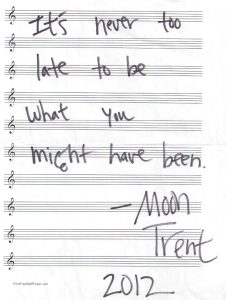 It's never too
late to be
what you
might have been.
—Moon
Trent
2012